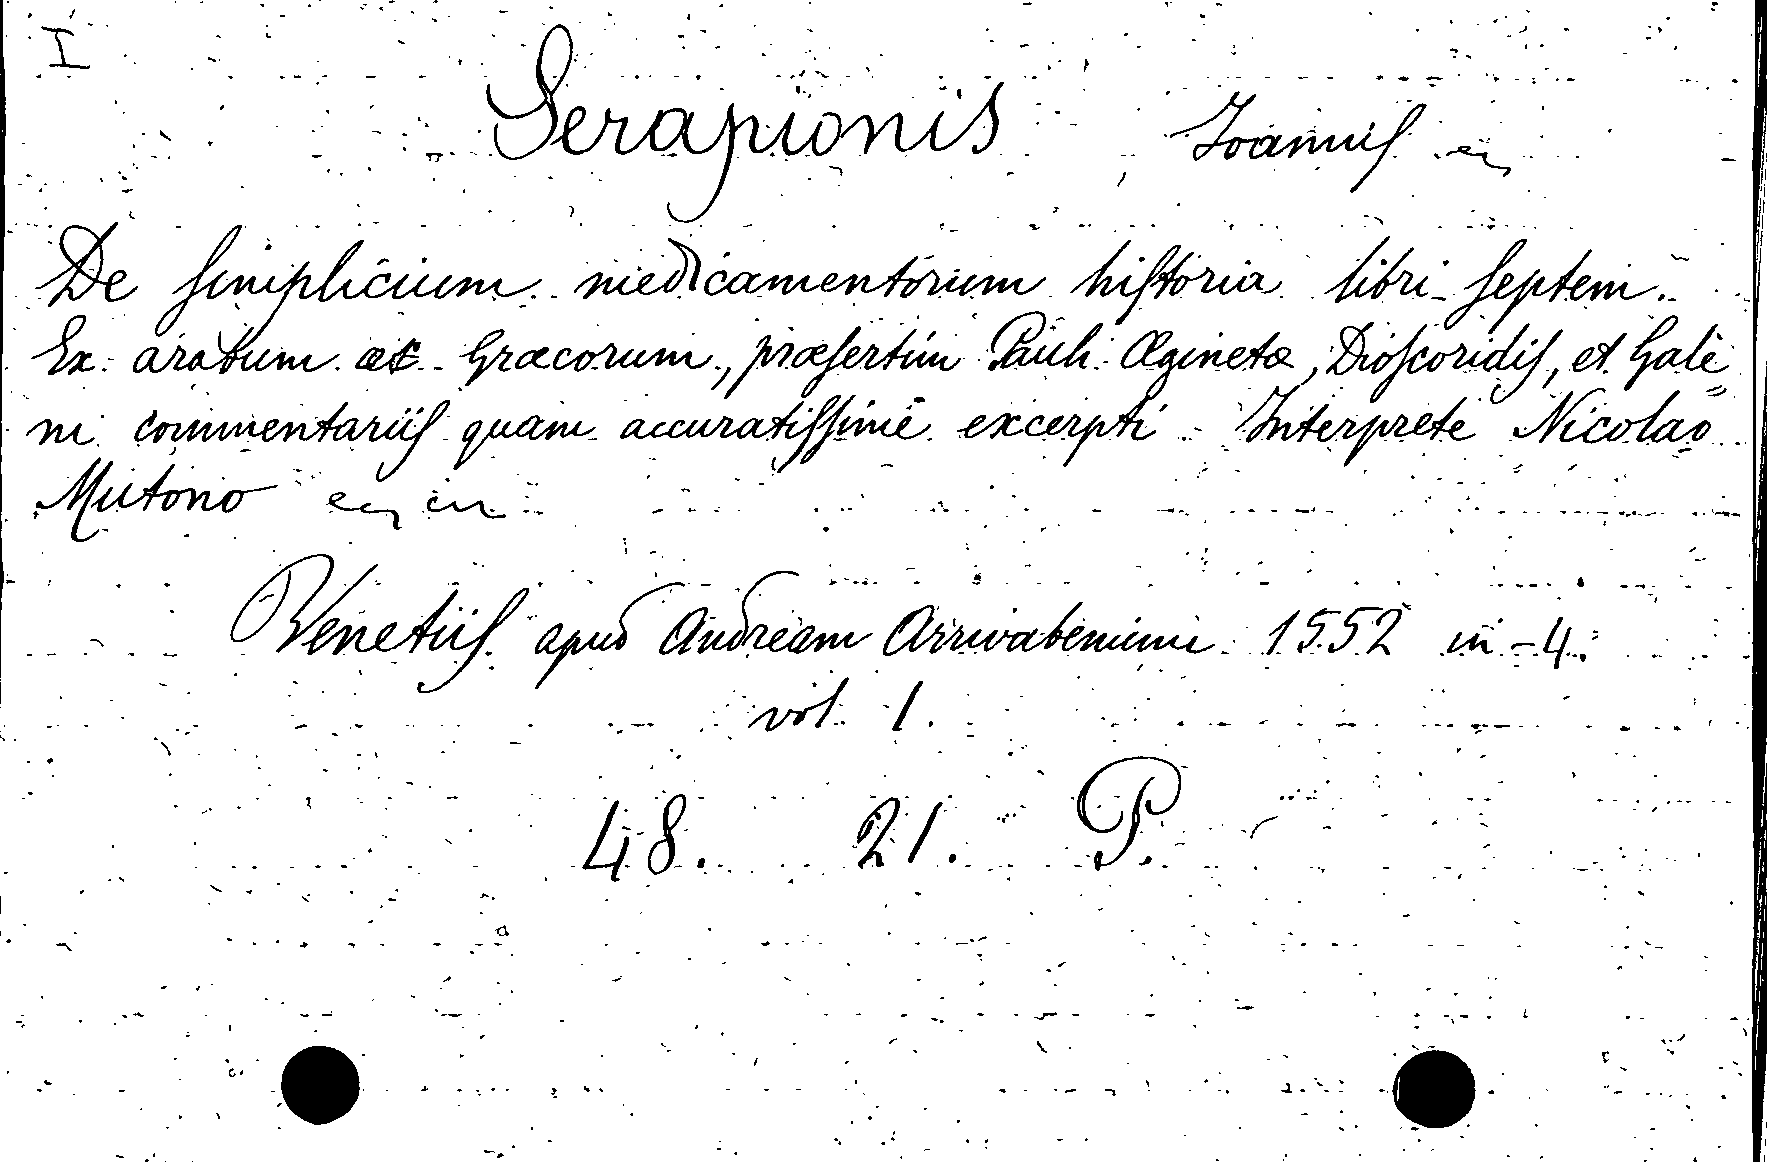 I
Serapionis Joannis
De simplicium medicamentorum historia libri septem.
Ex arabum et Græcorum, præsertim Pauli Æginetæ, Dioscoridis, et Gale=
ni commentariis quam accuratissimè excerpti Interprete Nicolao
Mutono
Venetiis apud Andream Arrivabenium 1552 in-4.
vol. 1.
48. 21. P.